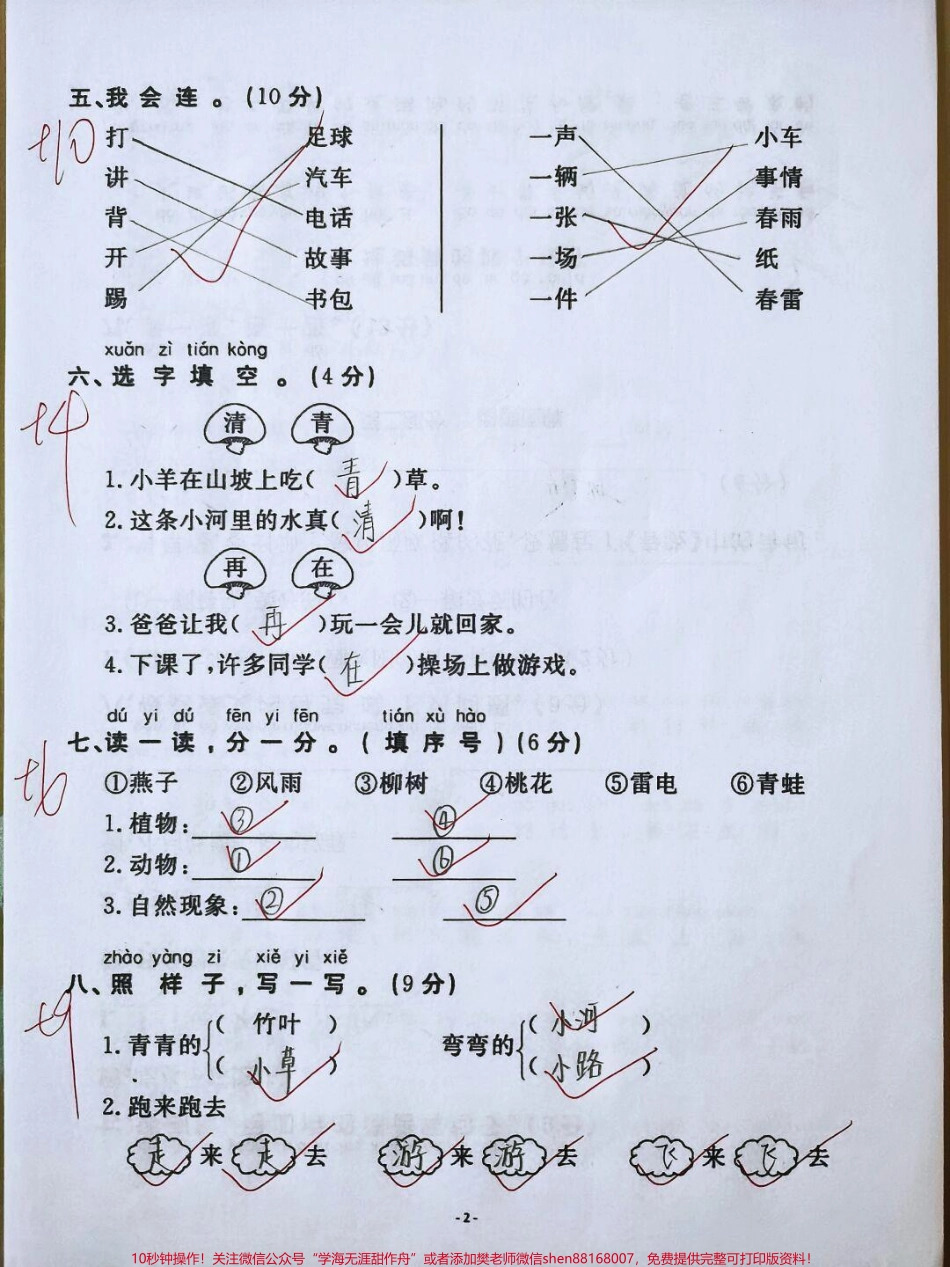 五、我会连。(10分)
+10
打 足球 一声 小车
讲 汽车 一辆 事情
背 电话 一张 春雨
开 故事 一场 纸
踢 书包 一件 春雷
xuǎn zì tián kòng
六、选字填空。(4分)
+4
清 青
1.小羊在山坡上吃( 青 )草。
2.这条小河里的水真( 清 )啊!
再 在
3.爸爸让我( 再 )玩一会儿就回家。
4.下课了,许多同学( 在 )操场上做游戏。
dú yi dú fēn yi fēn tián xù hào
七、读一读,分一分。(填序号)(6分)
+6
①燕子 ②风雨 ③柳树 ④桃花 ⑤雷电 ⑥青蛙
1.植物: ③ ④
2.动物: ① ⑥
3.自然现象: ② ⑤
zhào yàng zi xiě yi xiě
八、照样子,写一写。(9分)
+9
( 竹叶 ) ( 小河 )
1.青青的 弯弯的
( 小草 ) ( 小路 )
2.跑来跑去
走来走去 游来游去 飞来飞去
-2-
10秒钟操作！关注微信公众号“学海无涯甜作舟”或者添加樊老师微信shen88168007，免费提供完整可打印版资料！